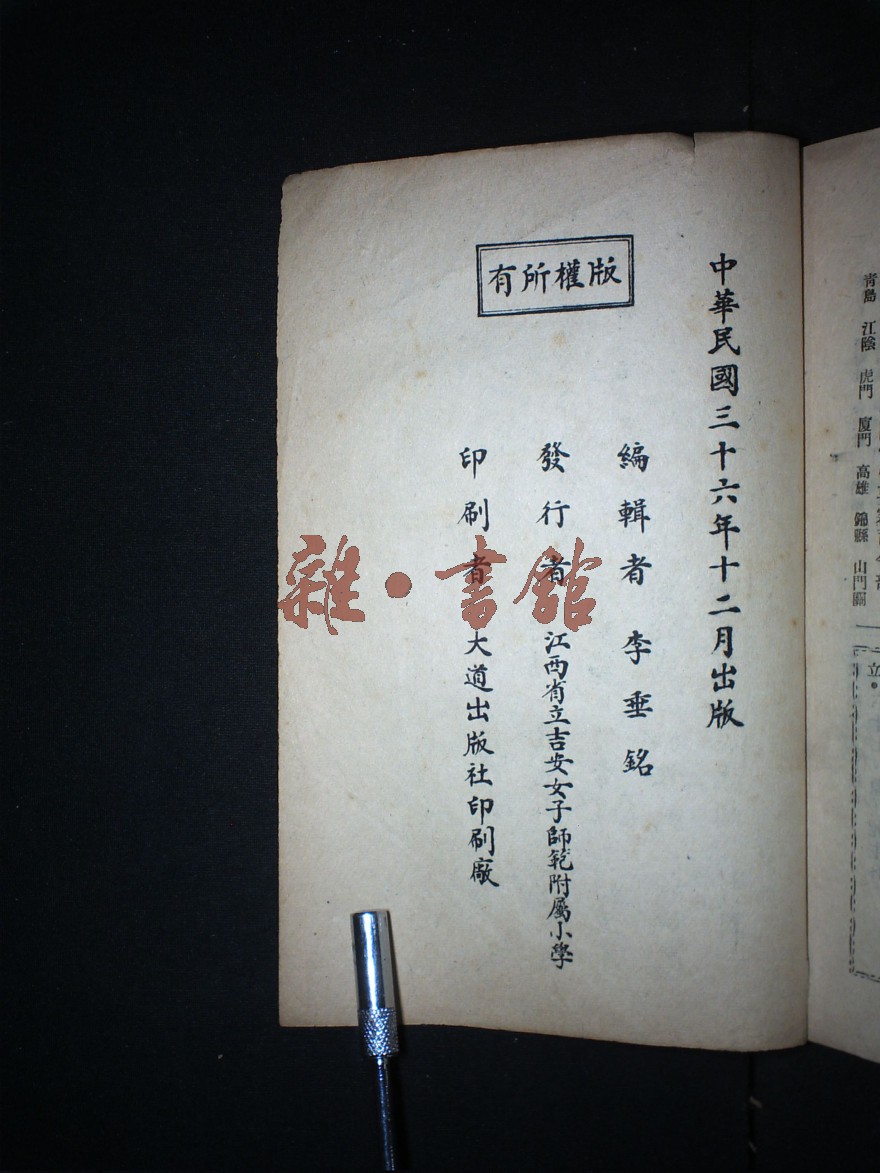 青島 江陰 虎門 廈門 高雄 錦縣 山門關
立。
中華民國三十六年十二月出版
版權所有
編輯者 李垂銘
發行者 江西省立吉安女子師範附屬小學
印刷者 大道出版社印刷廠
雜·書館